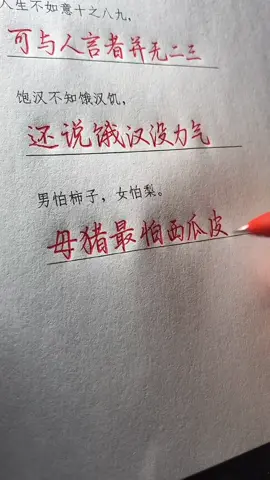 人生不如意十之八九，
可与人言者并无二三
饱汉不知饿汉饥，
还说饿汉没力气
男怕柿子，女怕梨。
母猪最怕西瓜皮